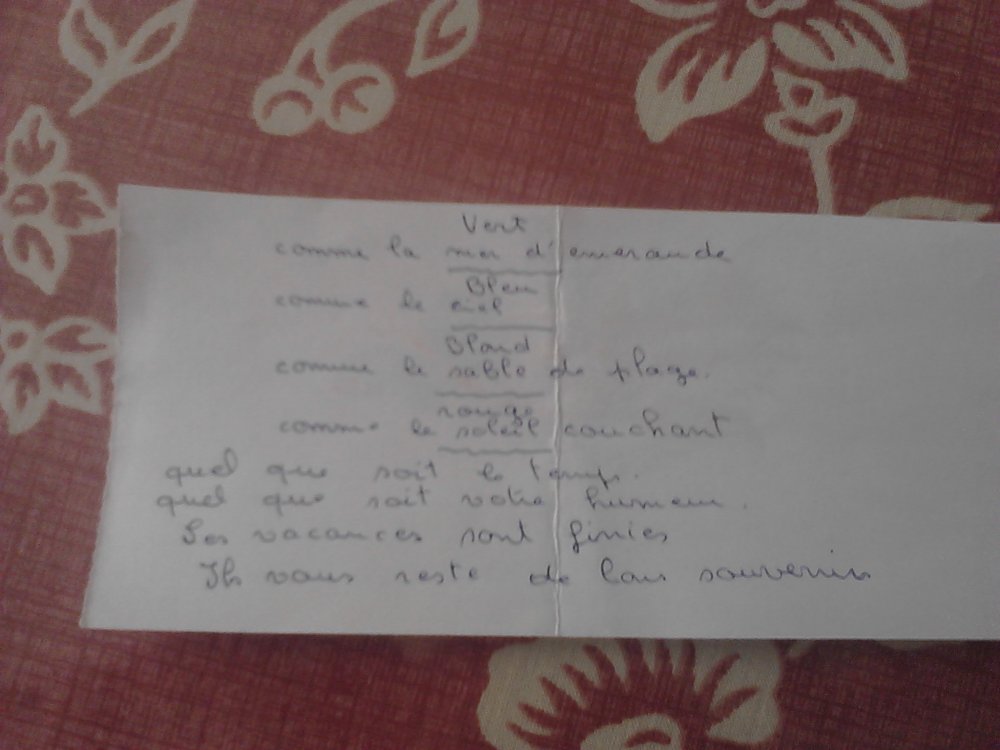 Vert
comme la mer d'emeraude
Bleu
comme le ciel
Blond
comme le sable de plage.
rouge
comme le soleil couchant
quel que soit le temps.
quel que soit votre humeur.
Les vacances sont finies
Ils vous reste de bons souvenirs